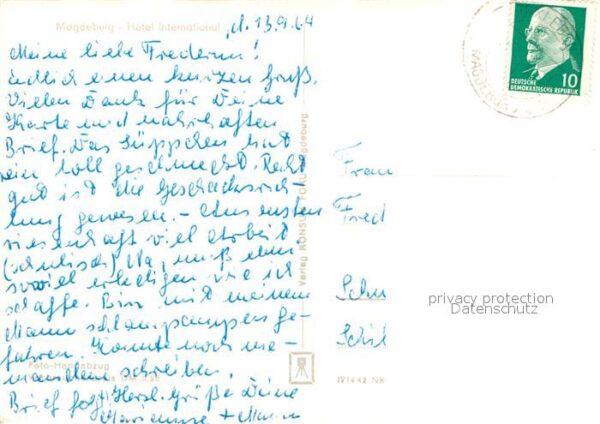 Magdeburg - Hotel International
d. 13.9.64
Meine liebe
endlich einen kurzen Gruß.
Vielen Dank für Deine
Karte und nahrhaften
Brief. Das Süppchen hat
fein toll geschmeckt. Recht
gut ist die Geschacksrich-
tung gewesen. - Am ersten
riesenhaft viel Arbeit.
(schulisch) Na, muß eben
soviel erledigen wie ich
schaffe. Bin mit meinem
Mann
fahren. Konnte noch nie-
mandem schreiben.
Brief folgt! Herzl. Grüße Deine
Marianne + Mann
Foto-Handabzug
Verlag KONSUM-FOTO Magdeburg
IV 14 42 NK
DEUTSCHE
DEMOKRATISCHE REPUBLIK
10
MAGDEBURG
Frau
Fried
Schu
Schil
privacy protection
Datenschutz